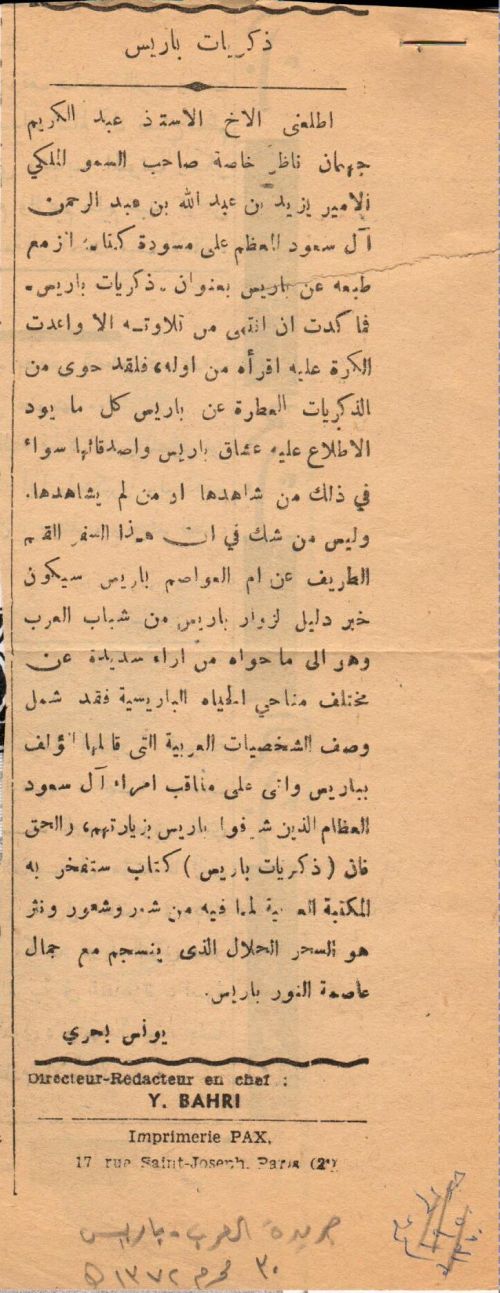 ذكريات باريس
اطلعني الاخ الاستاذ عبد الكريم
جهيمان ناظر خاصة صاحب السمو الملكي
الامير يزيد بن عبد الله بن عبد الرحمن
آل سعود المعظم على مسودة كتابه ازمع
طبعه عن باريس بعنوان - ذكريات باريس -
فما كدت ان انتهي من تلاوته الا واعدت
الكرة عليه اقرأه من اوله، فلقد حوى من
الذكريات العطرة عن باريس كل ما يود
الاطلاع عليه عشاق باريس واصدقائها سواء
في ذلك من شاهدها او من لم يشاهدها.
وليس من شك في ان هذا السفر القيم
الطريف عن ام العواصم باريس سيكون
خير دليل لزوار باريس من شباب العرب
وهو الى ما حواه من آراء سديدة عن
مختلف مناحي الحياه الباريسية فقد شمل
وصف الشخصيات العربية التي قابلها المؤلف
بباريس واتى على مناقب امراء آل سعود
العظام الذين شرفوا باريس بزيارتهم، والحق
فان (ذكريات باريس) كتاب ستفخر به
المكتبة العربية لما فيه من شعر وشعور ونثر
هو السحر الحلال الذى ينسجم مع جمال
عاصمة النور باريس.
يونس بحري
Directeur-Rédacteur en chef :
Y. BAHRI
Imprimerie PAX,
17 rue Saint-Joseph, Paris (2e)
جريدة العرب - باريس
٣٠ محرم ١٣٧٢ هـ